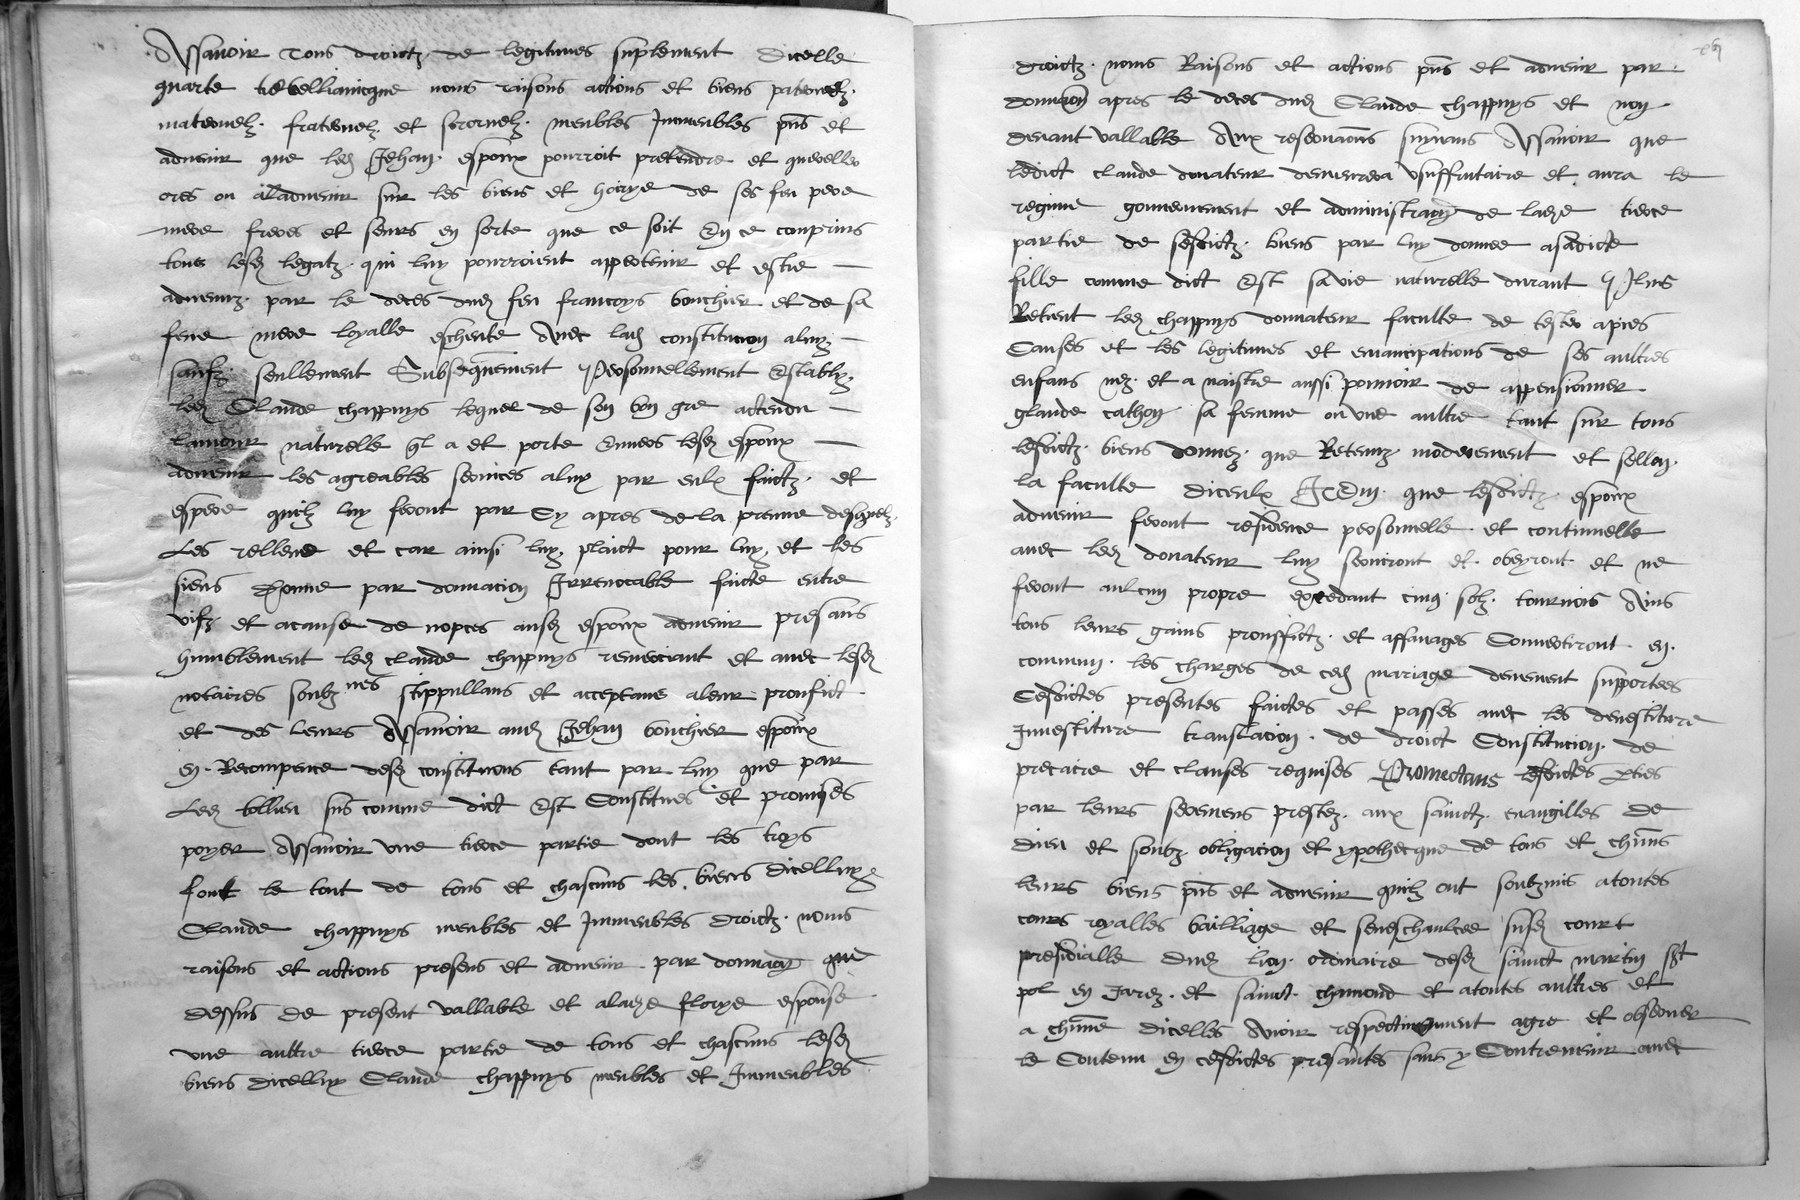 Assavoir Tous droictz de legitimes suplement dicelle
quarte trebellianicque noms raisons actions et biens paternelz
maternelz fraternelz et sorornelz meubles Immeubles pns et
advenir que led Jehan espoux pourroit pretendre et quereller
ores ou alladvenir sur les biens et hoirye de ses feu pere
mere freres et seurs en sorte que ce soit En ce comprins
tous lesd legatz qui luy pourroient appertenir et estre
advenuz par le deces dud feu francoys bouchier et de sa
feue mere loyalle escheute Avec lad constitucion aluy
saufz seullement Subsequement Personnellement Estably
led Claude chappuys lequel de son bon gre actendu
lamour naturelle ql a et porte Envers lesd espoux
advenir les agreables services aluy par eulx faictz et
espere quilz luy feront par Cy apres de la preuve desquelz
Les relleve et car ainsi luy plaict pour luy et les
siens Donne par donnacion Irrevocable faicte entre
vifz et acause de nopces ausd espoux advenir presans
humblement led claude chappuys remerciant et avec lesd
notaires soubznes stippullans et acceptans aleur prouffict
et des leurs Assavoir aud Jehan bouchier espoux
en Recompence desd constitutions tant par luy que par
Led tollieu sus comme dict Est Constitues et promises
poyer Assavoir une tierce partie dont les troys
font le tout de tous et chascuns les biens dicelluy
Claude chappuys meubles et Immeubles droictz noms
raisons et actions presens et advenir par donnacion que
dessus de present vallable et alade florye espouse
une aultre tierce partie de tous et chascuns lesd
biens dicelluy Claude chappuys meubles et Immeubles
droictz noms Raisons et actions pns et advenir par
donnacion apres le deces dud Claude chappuys et non
devant vallable Aux reservations suyvans Assavoir que
ledict claude donateur demeurera Usuffruitaire et aura le
regime gouvernement et administracion de lade tierce
partie de sesdictz biens par luy donnee asadicte
fille comme dict Est sa vie naturelle durant Plus
Retient led chappuys donnateur faculte de tester apies
Causes et les legitimes et emancipations de ses aultres
enfans nez et a naistre aussi pouvoir de appensionner
glaude cathon sa femme ou une aultre tant sur tous
lesdictz biens donnez que Retenuz moderement et sellon
la faculte diceulx Item que lesdictz espoux
advenir feront residence personnelle et continuelle
avec led donateur luy serviront et obeyront et ne
feront aulcun propre excedant cinq solz tournois Ains
tous leurs gains prouffictz et affanages Convertiront en
commun les charges de ced mariage devement supportees
Cesdictes presentes faictes et passes avec les devestiture
Investiture translacion de droict Constitucion de
precaire et clauses requises Promectans lesdictes pties
par leurs seremens prestez aux sainctz evangilles de
dieu et soubz obligacion et ypothecque de tous et chuns
leurs biens pns et advenir quilz ont soubzmis atoutes
cours royalles bailliage et seneschaulcee susd court
presidialle dud lion ordinaire desd sainct martin sct
pol en Jarez et sainct chamond et atoutes aultres et
a chune dicelles Avoir respectivement agre et observer
le Contenu en cesdictes presantes sans y Contrevenir avec